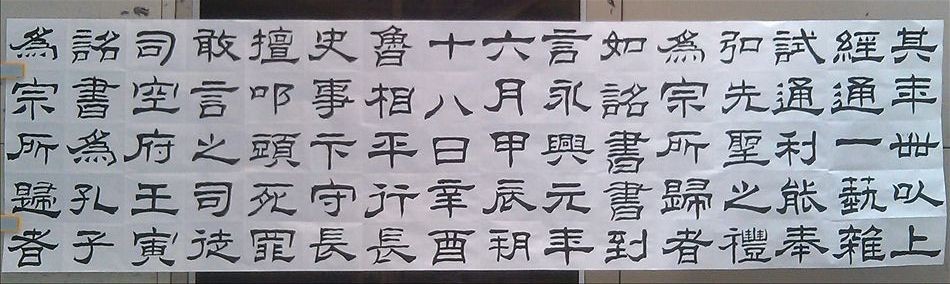 其年卌以上
經通一藝雜
試通利能奉
弘先聖之禮
為宗所歸者
如詔書書到
言永興元年
六月甲辰朔
十八日辛酉
魯相平行長
史事卞守長
擅叩頭死罪
敢言之司徒
司空府壬寅
詔書為孔子
為宗所歸者